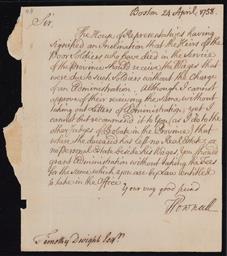 Boston 24 April, 1758.
Sir,
The House of Representatives having
signified an Inclination that the Heirs of the
Poor Soldiers who have died in the Service
of the Province should receive the Wages that
were due to such Soldiers without the Charge
of an Administration, Although I cannot
approve of their receiving the same without
taking out Letters of Administration; yet I
cannot but recommend it to you (as I do to the
other Judges of Probate in the Province) that
where the deceased has left no Real Estate or
no personal Estate beside his Wages, You should
grant Administration without taking the Fees
for the same which you are by Law entitled
to take in the Office.
Your very good friend
TPownall
Timothy Dwight Esqr.